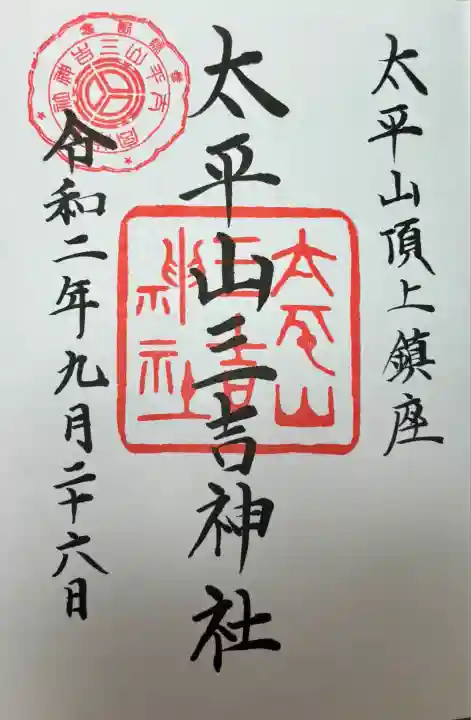 太平山頂上鎮座
太平山三吉神社
令和二年九月二十六日
太平山
三吉
神社